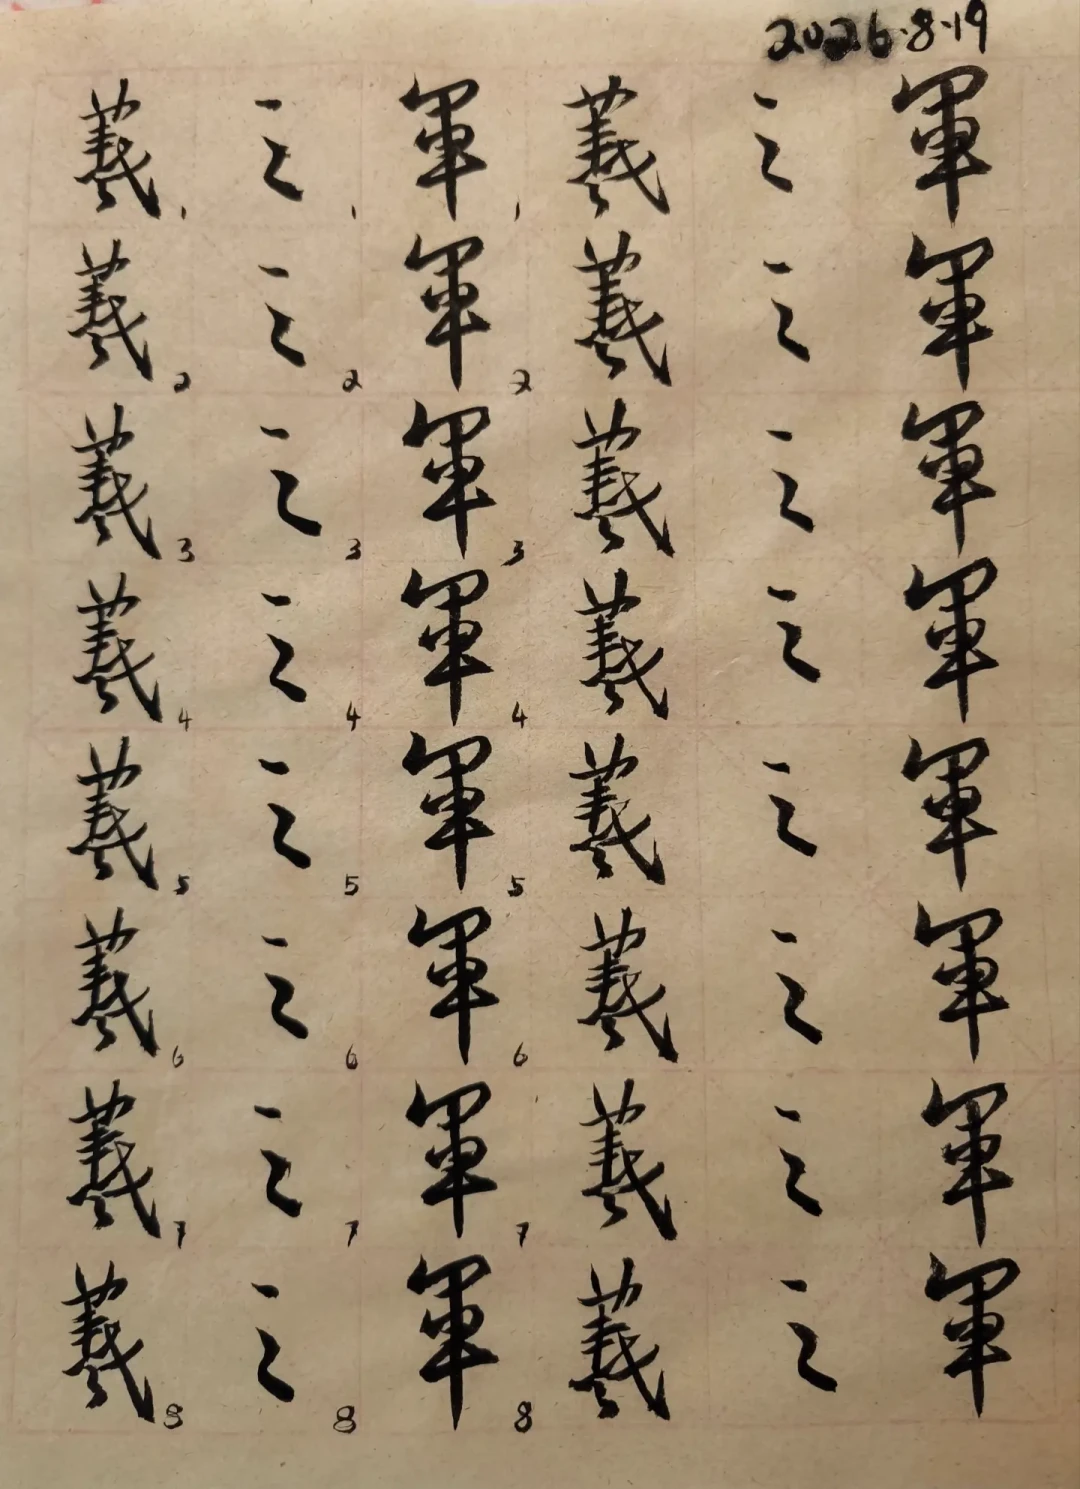 2026.8.19
羲 之 軍 羲 之 軍
1 1 1
羲 之 軍 羲 之 軍
2 2 2
羲 之 軍 羲 之 軍
3 3 3
羲 之 軍 羲 之 軍
4 4 4
羲 之 軍 羲 之 軍
5 5 5
羲 之 軍 羲 之 軍
6 6 6
羲 之 軍 羲 之 軍
7 7 7
羲 之 軍 羲 之 軍
8 8 8